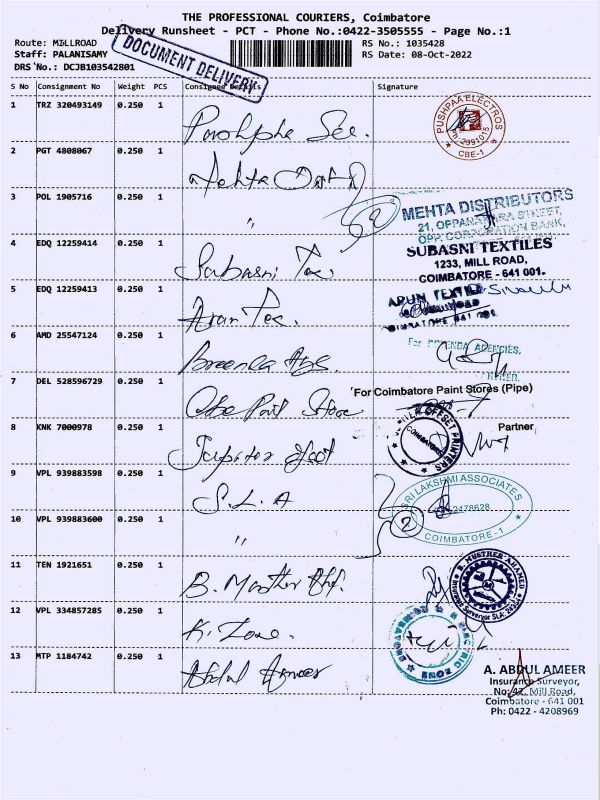 THE PROFESSIONAL COURIERS, Coimbatore
Delivery Runsheet - PCT - Phone No.:0422-3505555 - Page No.:1
Route: MILLROAD
RS No.: 1035428
Staff: PALANISAMY
RS Date: 08-Oct-2022
DRS No.: DCJB103542801
DOCUMENT DELIVERY
S No Consignment No Weight PCS Consignee Details Signature
1 TRZ 320493149 0.250 1
PUSHPAA ELECTROS
CBE-1
2 PGT 4808067 0.250 1 Mehta
3 POL 1905716 0.250 1 "
MEHTA DISTRIBUTORS
21, OPPANAKARA STREET,
OPP. CORPORATION BANK,
4 EDQ 12259414 0.250 1 Subasni Tex.
SUBASNI TEXTILES
1233, MILL ROAD,
COIMBATORE - 641 001.
5 EDQ 12259413 0.250 1 Arun Tex.
ARUN TEXTILE
6 AMD 25547124 0.250 1
For AGENCIES,
7 DEL 528596729 0.250 1 Cbe Paint Store
For Coimbatore Paint Stores (Pipe)
Partner
8 KNK 7000978 0.250 1 Jupiter
OFFSET PRINTERS
COIMBATORE
9 VPL 939883598 0.250 1 S.L.A
SRI LAKSHMI ASSOCIATES
2478628
COIMBATORE-1
10 VPL 939883600 0.250 1 "
2
11 TEN 1921651 0.250 1 B.
B. MUSTHER AHAMED
12 VPL 334857285 0.250 1 K. Zone.
ELECTRIC ZONE
13 MTP 1184742 0.250 1 Abdul Ameer
A. ABDUL AMEER
Insurance Surveyor,
No: 42, Mill Road,
Coimbatore - 641 001
Ph: 0422 - 4208969